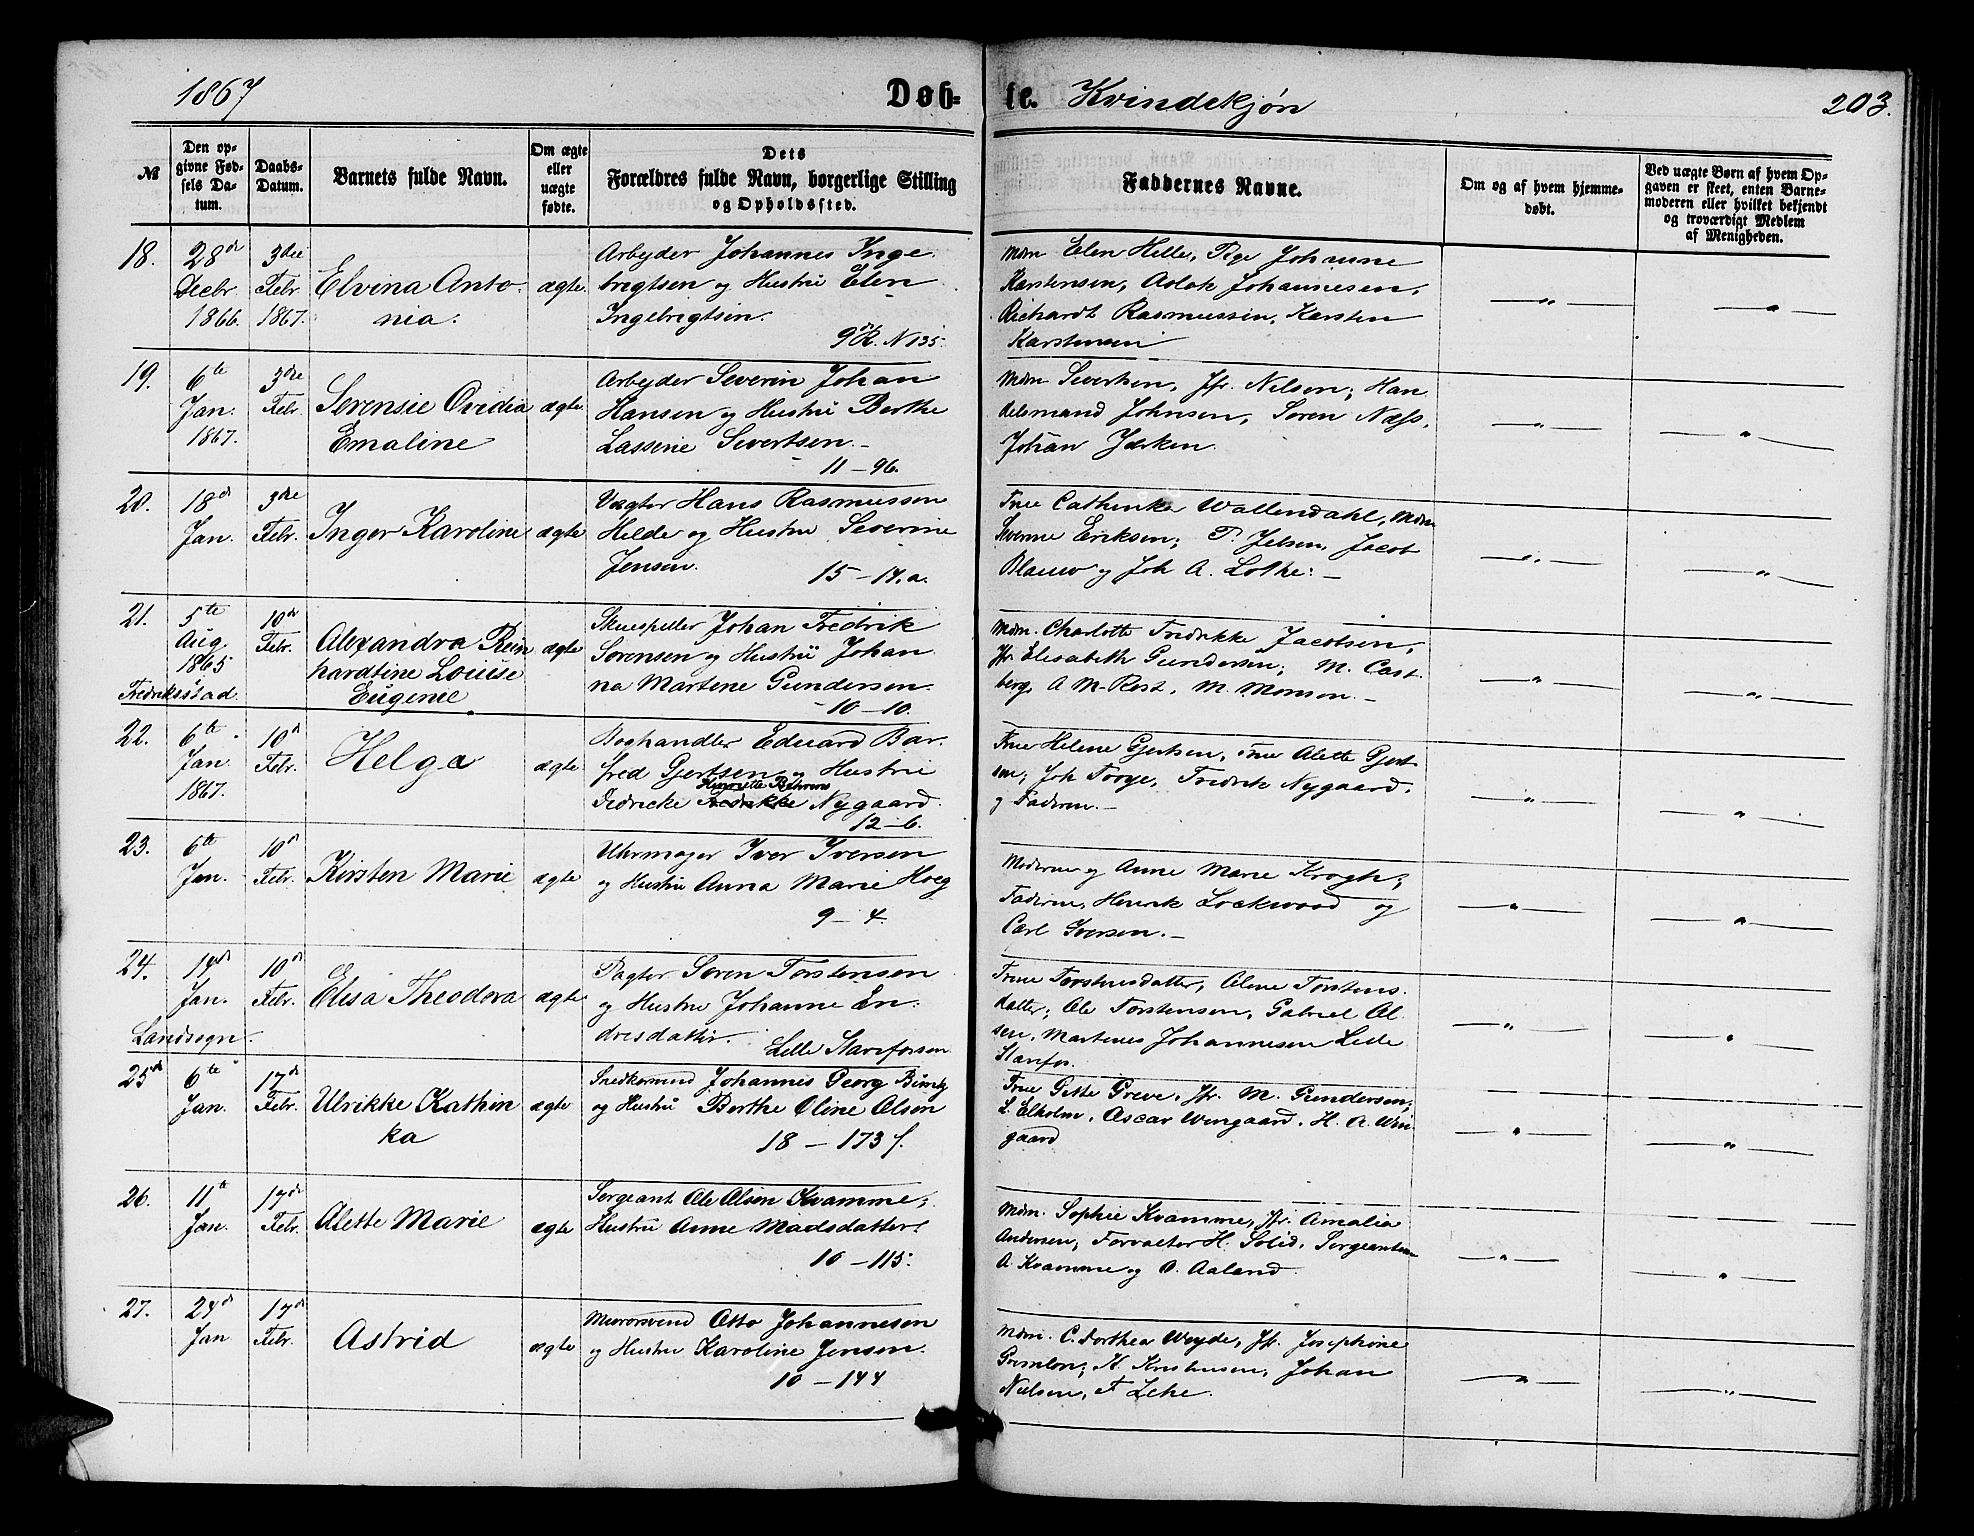 1867
Døb-
te. Kvindekjøn
203.
№
Den op-
givne Fød-
sels Da-
tum.
Daabs-
Datum.
Barnets fulde Navn.
Om ægte
eller
uægte
fødte.
Dets
Forældres fulde Navn, borgerlige Stilling
og Opholdssted.
Faddernes Navne.
Om og af hvem hjemme-
døbt.
Ved uægte Børn af hvem Op-
gaven er skeet, enten Barne-
moderen eller hvilket bekjendt
og troværdigt Medlem
af Menigheden.
18.
28de
Decbr
1866.
3die
Febr
1867.
Elvina Anto-
nia.
ægte
Arbejder Johannes Inge
brigtsen og Hustru Elen
Ingebrigtsen.
9de R. N 135.
Mdm Elen Helle, Pige Johanne
Karstensen, Aslak Johannesen,
Richardt Rasmussen, Karsten
Karstensen
19.
6te
Jan.
1867.
3die
Febr.
Serensie Ovidia
Emaline
ægte
Arbejder Severin Johan
Hansen og Hustru Berthe
Lassene Sivertsen.
11 - 96.
Mdm Sivertsen, Jfr. Nilsen; Han
delsmand Johnsen, Søren Næss,
Johan
20.
18de
Jan.
3die
Febr.
Inger Karoline
ægte
Vægter Hans Rasmussen
Helde og Hustru Severine
Jensen.
15 - 14.a.
Frue Cathinka Wallendahl, Mdm
Severine Eriksen; P. Jebsen, Jacob
Blauw og Joh A. Lothe. -
21.
5te
Aug
1865
Fredriksstad.
10de
Febr.
Alexandra Rein
hardtine Louise
Eugenie
ægte
Skuespiller Johan Fredrik
Sørensen og Hustru Johan
na Martene Gundersen.
10 - 10.
Mdm. Charlotte Fredrikke Jacobsen,
Jfr. Elisabeth Gundersen; M. Cast
berg, A M. Rost, M. Monson. -
22.
6te
Jan.
1867.
10de
Febr.
Helga
ægte
Boghandler Eduard Bar.
fred Gjertsen og Hustru
Henriette Behrens
Didricke Fredrikke Nygaard.
12 - 6.
Frue Helene Gjertsen, Frue Alette Gjert
sen; Joh Forge, Fredrik Nygaard,
og Faderen. -
23.
6te
Jan.
10de
Febr.
Kirsten Marie
ægte
Uhrmager Iver Iversen
og Hustru Anna Marie Hoeg
9 - 4.
Moderen og Anne Marie Krogh;
Faderen, Henrik Lockwood og
Carl Iversen. -
24.
14de
Jan.
Landsogn.
10de
Febr.
Elisa Theodora
ægte
Pagter Søren Torstensen
og Hustru Johanne En.
dresdatter.
Lille Starefossen
Frue Torstensdatter, Oline Torstens
datter; Ole Torstensen, Gabriel Ol
sen, Martenes Johannesen Lille
Starefos.
25de
6te
Jan.
17de
Febr.
Ulrikke Kathin
ka
ægte
Snedkersvend Johannes Georg
og Hustru Berthe Oline Olsen
18 - 173 f.
Frue Gitte Greve, Jfr. M. Gundersen;
L. Elholm, Oscar Wingaard, H. A. Win
gaard
26.
11te
Jan.
17de
Febr.
Alette Marie
ægte
Sergeant Ole Olsen Kvamme;
Hustru Anne Madsdatter
10 - 115.
Mdm. Sophie Kvamme, Jfr. Amalia
Andersen; Forvalter H. Solid, Sergeantern
A. Kvamme og O. Aaland.
27.
24de
Jan
17de
Febr.
Astrid
ægte
Murersvend Otto Johannesen
og Hustru Karoline Jensen.
10 - 144
Mdm. C. Dorthea Weyde, Jfr. Josephine
K. Kristensen, Johan
Nielsen,